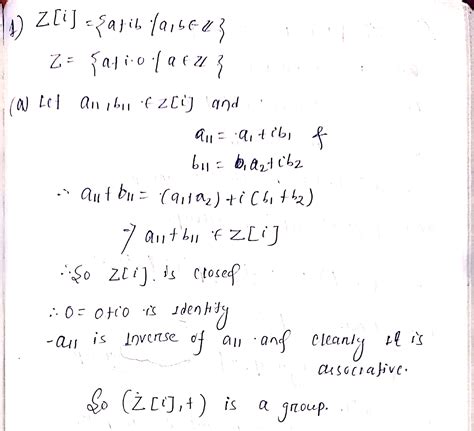 1) Z[i] = {a+ib / a,b ∈ Z}
Z = {a+i·0 / a ∈ Z}
(a) Let a11, b11 ∈ Z[i] and
a11 = a1 + ib1 &
b11 = a2 + ib2
∴ a11 + b11 = (a1+a2) + i(b1+b2)
⇒ a11 + b11 ∈ Z[i]
∴ So Z[i] is closed
∴ 0 = 0+i0 is identity
-a11 is inverse of a11 and clearly it is
associative.
So (Z[i], +) is a group.